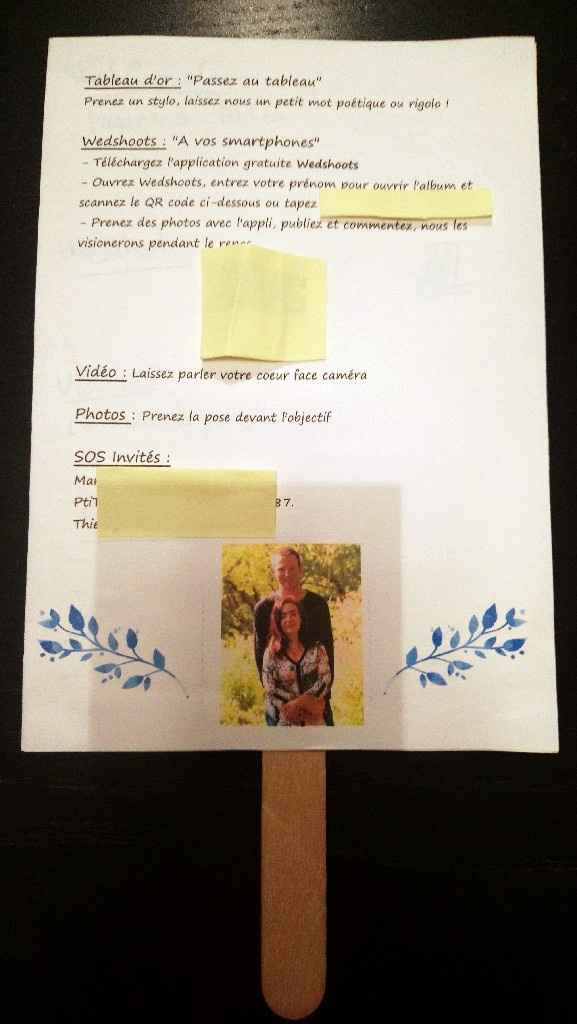 Tableau d'or : "Passez au tableau"
Prenez un stylo, laissez nous un petit mot poétique ou rigolo !
Wedshoots : "A vos smartphones"
- Téléchargez l'application gratuite Wedshoots
- Ouvrez Wedshoots, entrez votre prénom pour ouvrir l'album et
scannez le QR code ci-dessous ou tapez
- Prenez des photos avec l'appli, publiez et commentez, nous les
visionerons pendant le repas
Vidéo : Laissez parler votre coeur face caméra
Photos : Prenez la pose devant l'objectif
SOS Invités :